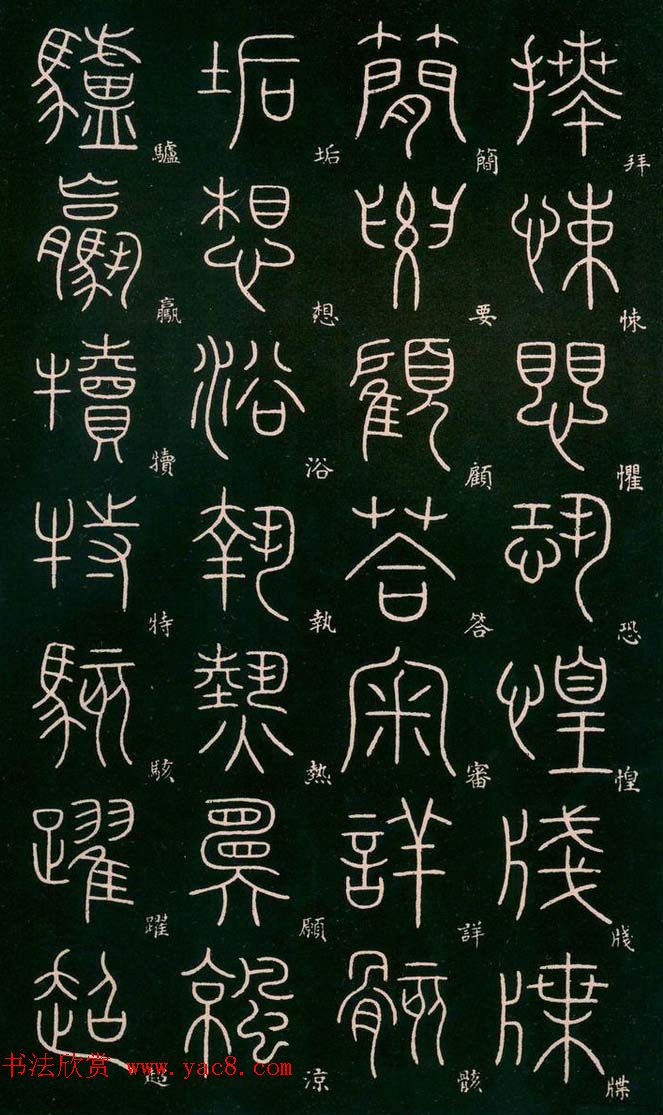 拜悚懼恐惶牋牒
簡要顧答審詳骸
垢想浴執熱願涼
驢驘犢特駭躍超
书法欣赏 www.yac8.com